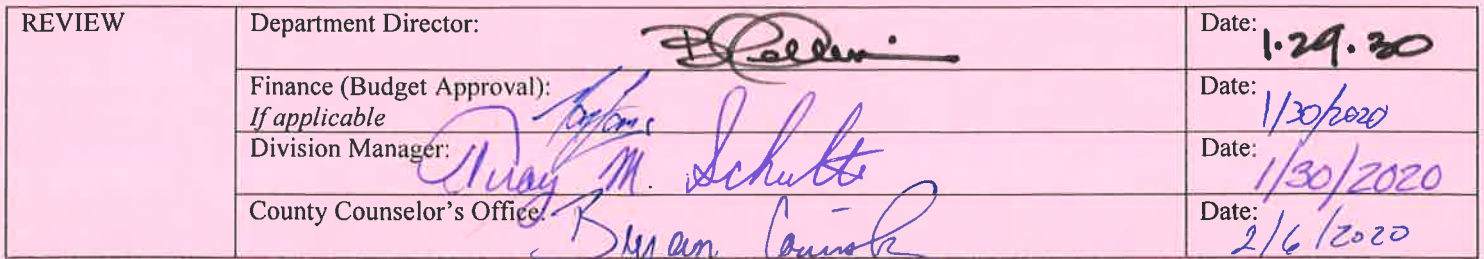 REVIEW
Department Director:
Date: 1.29.30
Finance (Budget Approval):
If applicable
Date: 1/30/2020
Division Manager: M. Schulte
Date: 1/30/2020
County Counselor's Office:
Date: 2/6/2020